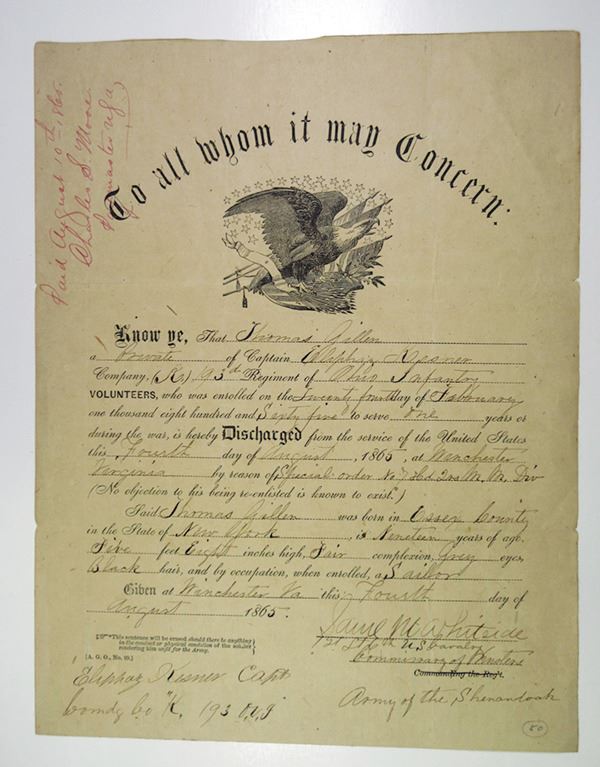 Paid August 10th 1865.
Charles S. Moore
Paymaster U.S.A.
To all whom it may Concern:
Know ye, That Thomas Gillen
a Private of Captain Eliphaz Kesner
Company, (K,) 193d Regiment of Ohio Infantry
VOLUNTEERS, who was enrolled on the Twenty fourth day of February
one thousand eight hundred and Sixty five to serve One years or
during the war, is hereby Discharged from the service of the United States
this Fourth day of August, 1865, at Winchester
Virginia by reason of Special order No 7 Hd 2nd Div
(No objection to his being re-enlisted is known to exist.*)
Said Thomas Gillen was born in Essex County
in the State of New York, is Nineteen years of age,
Five feet Eight inches high, Fair complexion, Grey eyes,
Black hair, and by occupation, when enrolled, a Sailor
Given at Winchester Va this Fourth day of
August 1865.
*This sentence will be erased should there be anything
in the conduct or physical condition of the soldier
rendering him unfit for the Army.
[A. G. O., No. 99.]
Whiteside
1st Lt 6th U.S. Cavalry
Commissary of Musters
Commanding the Reg't.
Army of the Shenandoah
Eliphaz Kesner Capt
Comdg Co "K, 193 O.V.I
80